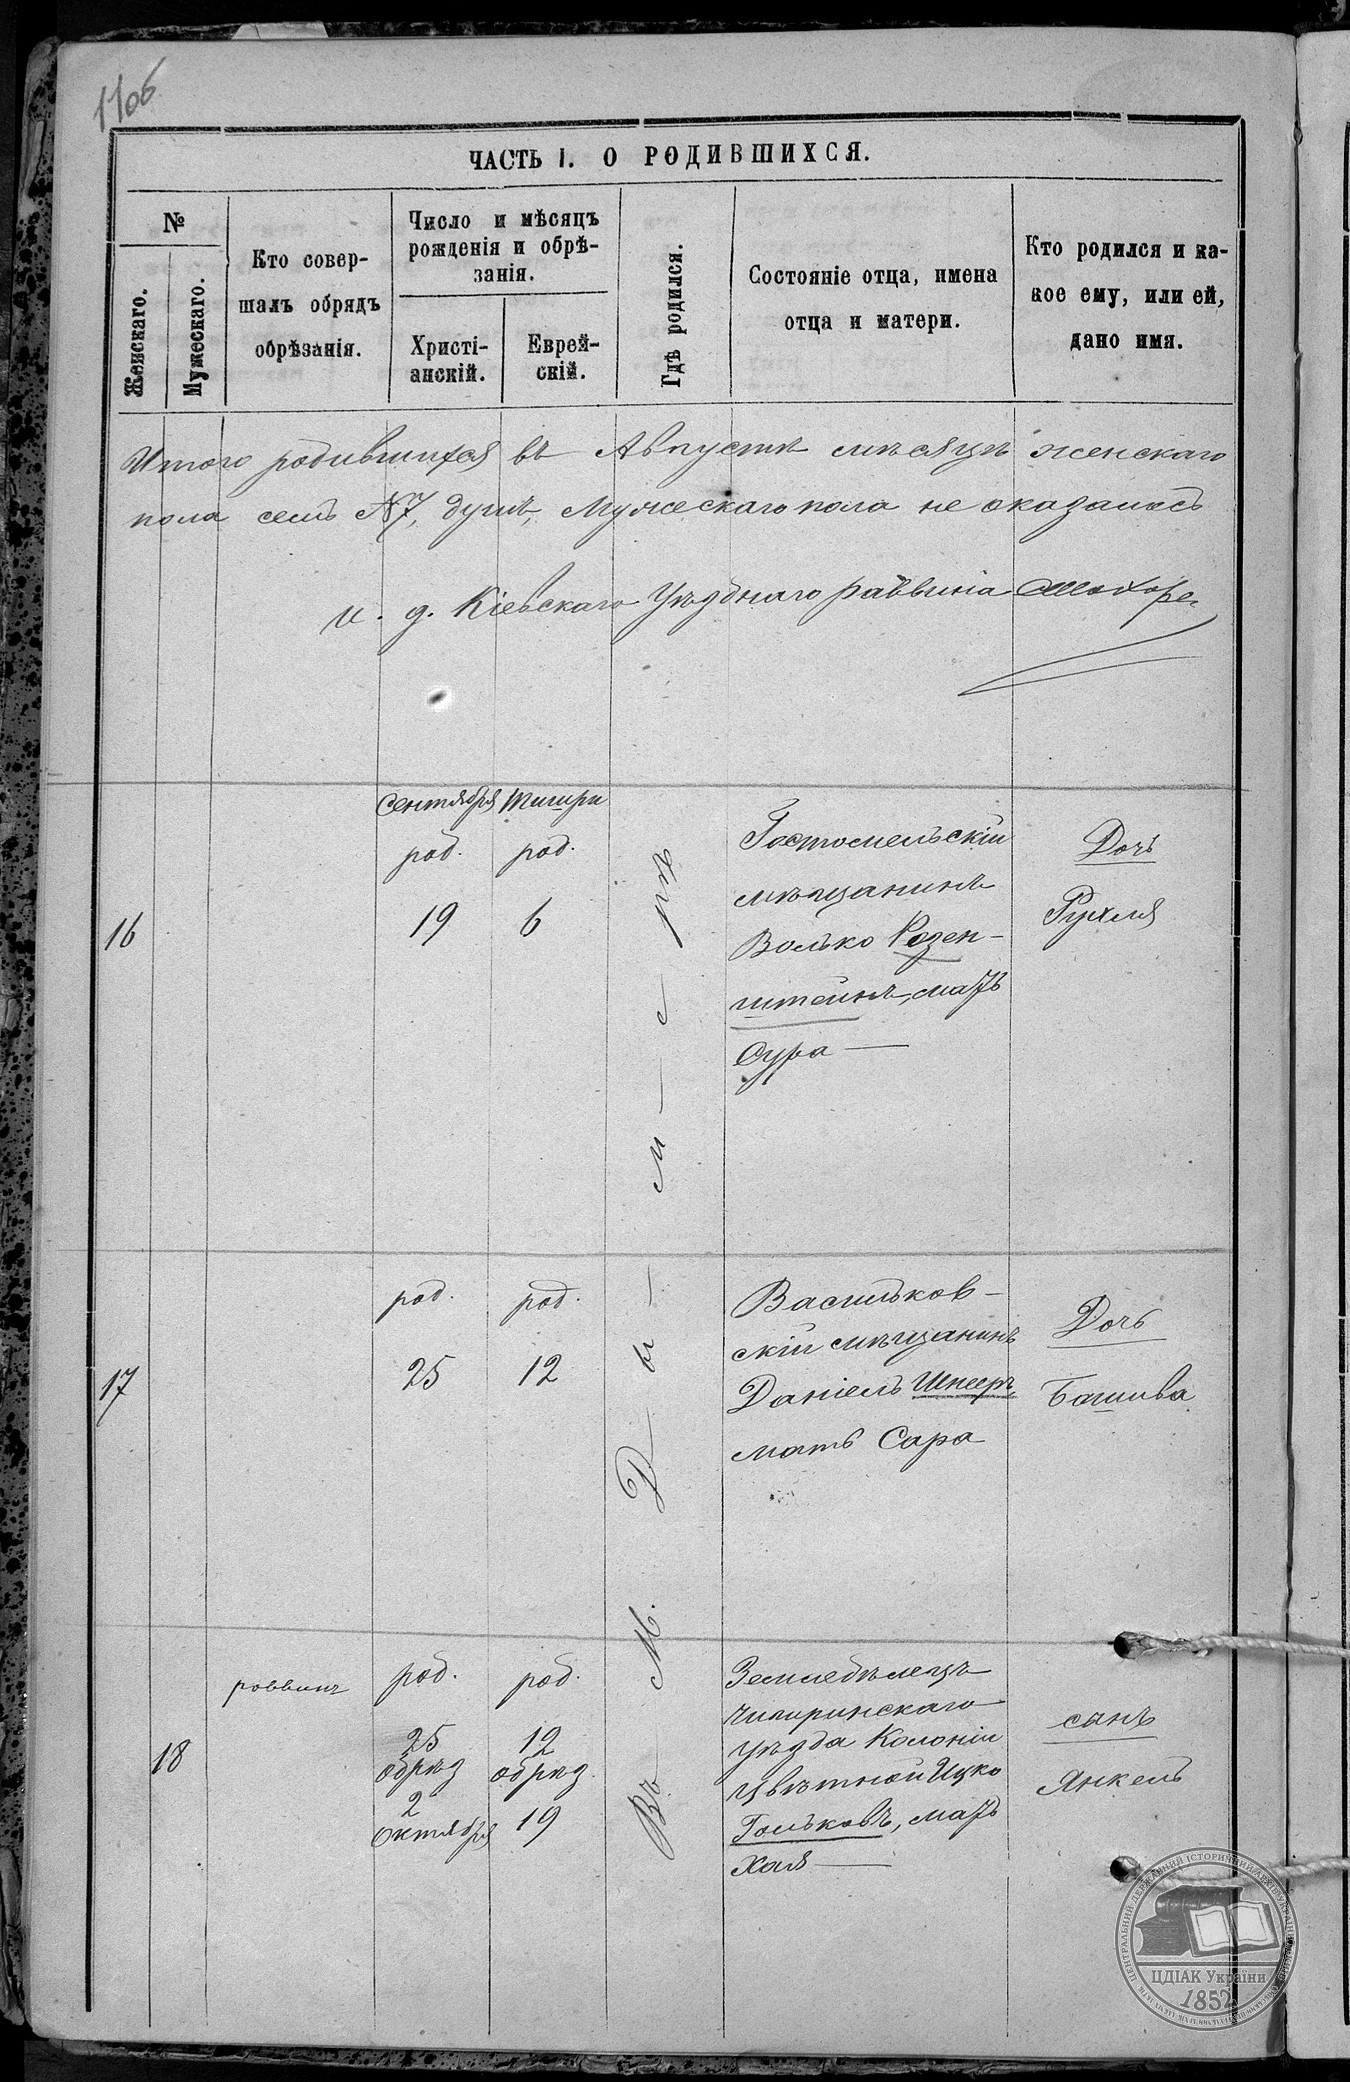 110б
ЧАСТЬ I. О РОДИВШИХСЯ.
№
Женскаго.
Мужескаго.
Кто совер-
шалъ обрядъ
обрѣзанія.
Число и мѣсяцъ
рожденія и обрѣ-
занія.
Христі-
анскій.
Еврей-
скій.
Гдѣ родился.
Состояніе отца, имена
отца и матери.
Кто родился и ка-
кое ему, или ей,
дано имя.
Итого родившихся въ Августѣ мѣсяцѣ женскаго
пола семь №7, душъ, Мужескаго пола не оказалось
и. д. Кіевскаго Уѣзднаго раввина
Въ М. Д - ы - м - с - рѣ
16
Сентября
род.
19
Тишри
род.
6
Гостомельскій
мѣщанинъ
Волько Розен-
штейнъ, мать
Сура
Дочь
Рухля
17
род.
25
род.
12
Васильков-
скій мѣщанинъ
Даніель Шнееръ,
мать Сара
Дочь
Башива
18
раввинъ
род.
25
обрѣз
2
Октября
род.
12
обрѣз.
19
Земледѣлецъ
Чигиринскаго
уѣзда Колоніи
Цвѣтной Ицко
Гольковъ, мать
Хая
сынъ
Янкель
ЦЕНТРАЛЬНИЙ ДЕРЖАВНИЙ ІСТОРИЧНИЙ АРХІВ УКРАЇНИ
ЦДІАК України
1852